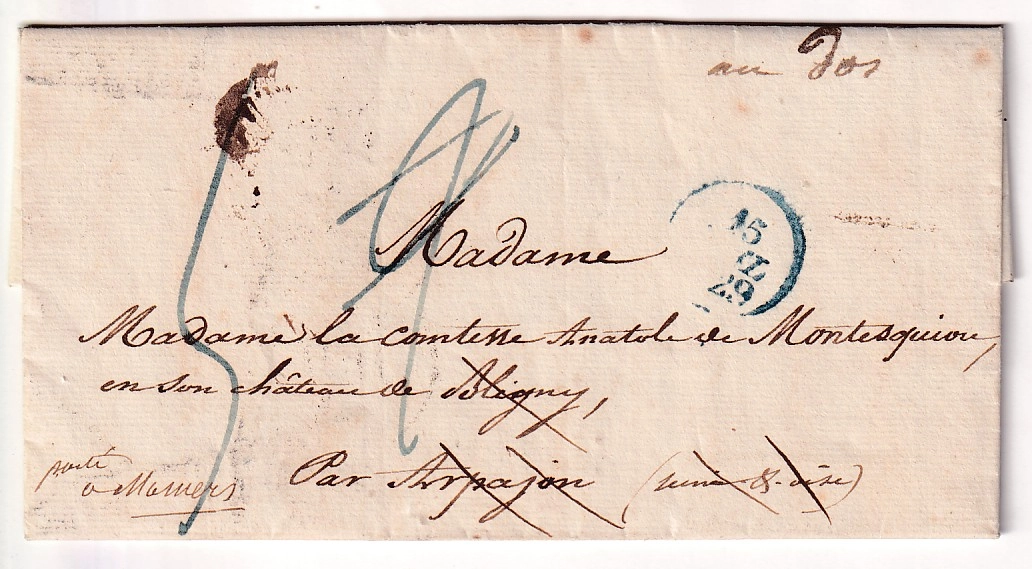 au Dos
Madame
15
29
Madame la comtesse Anatole de Montesquiou,
en son château de Bligny,
Par Arpajon (seine & oise)
parti
a Mamers